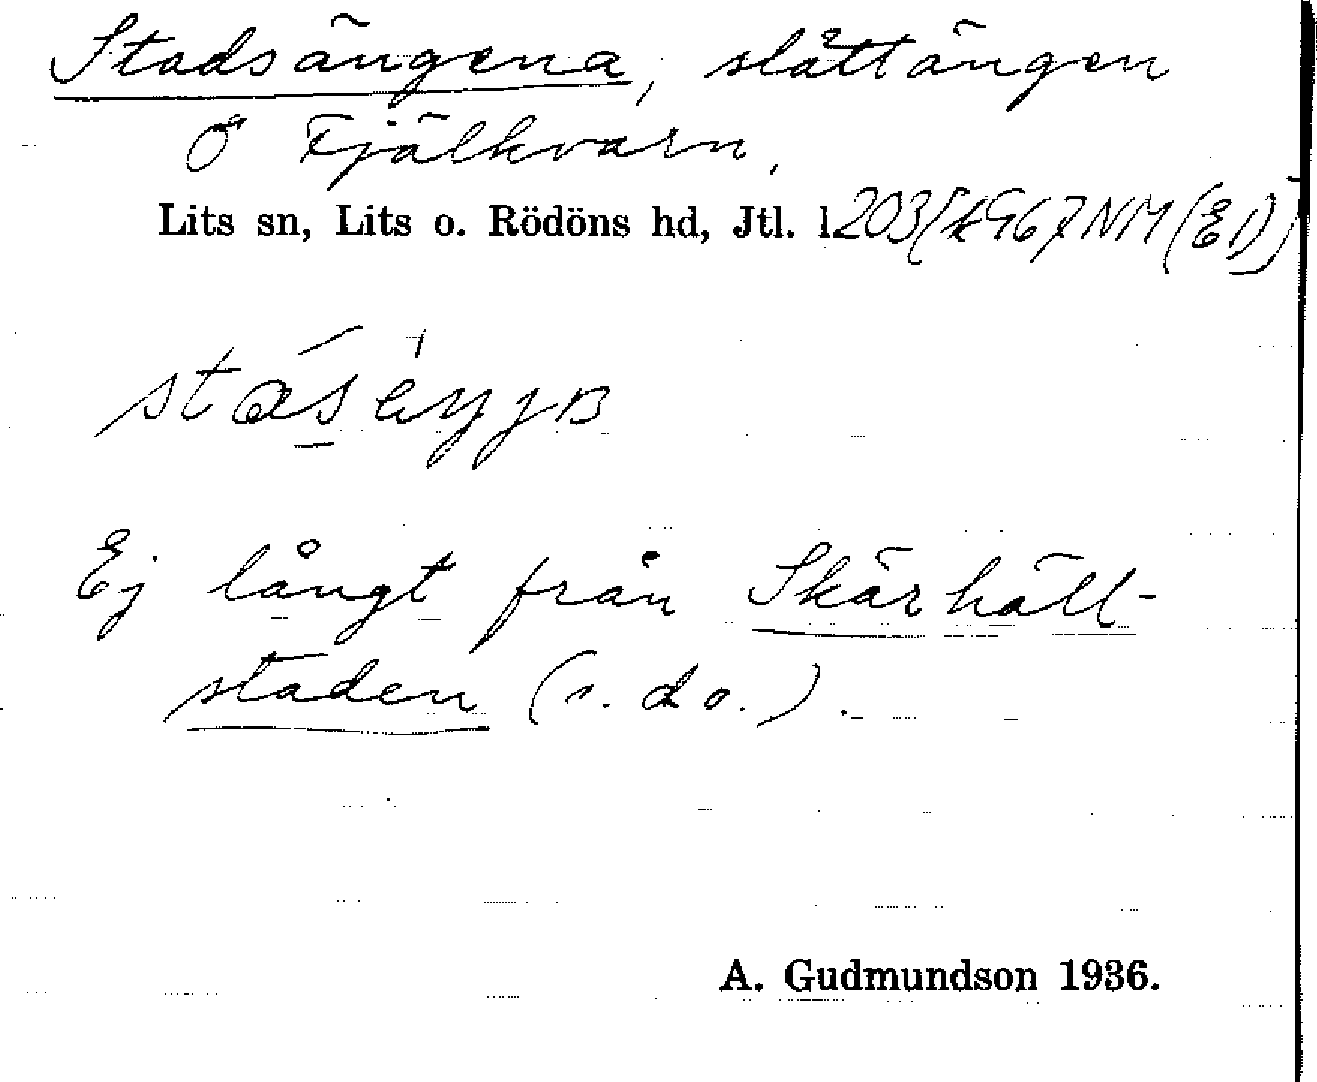 Stadsängena, slåttängen
Ö Fjälkvarn,
Lits sn, Lits o. Rödöns hd, Jtl. l.
Ej långt från Skärhäll-
staden (s. d o.).
A. Gudmundson 1936.